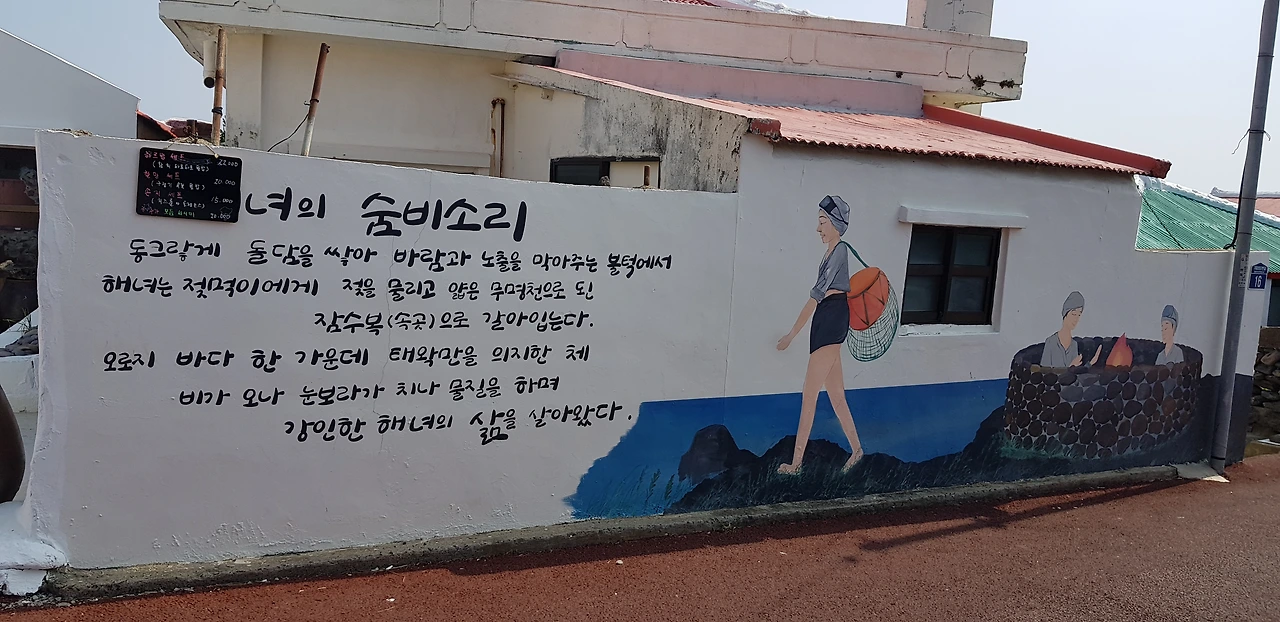 녀의 숨비소리
둥크랗게 돌담을 쌓아 바람과 노출을 막아주는 불턱에서
해녀는 젖먹이에게 젖을 물리고 얇은 무명천으로 된
잠수복(속곳)으로 갈아입는다.
오로지 바다 한 가운데 태왁만을 의지한 채
비가 오나 눈보라가 치나 물질을 하며
강인한 해녀의 삶을 살아왔다.
22.000
20.000
15.000
20.000
16